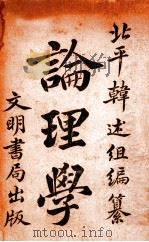 北平韓述組編纂
論理學
文明書局出版
http://www.mogujie.com